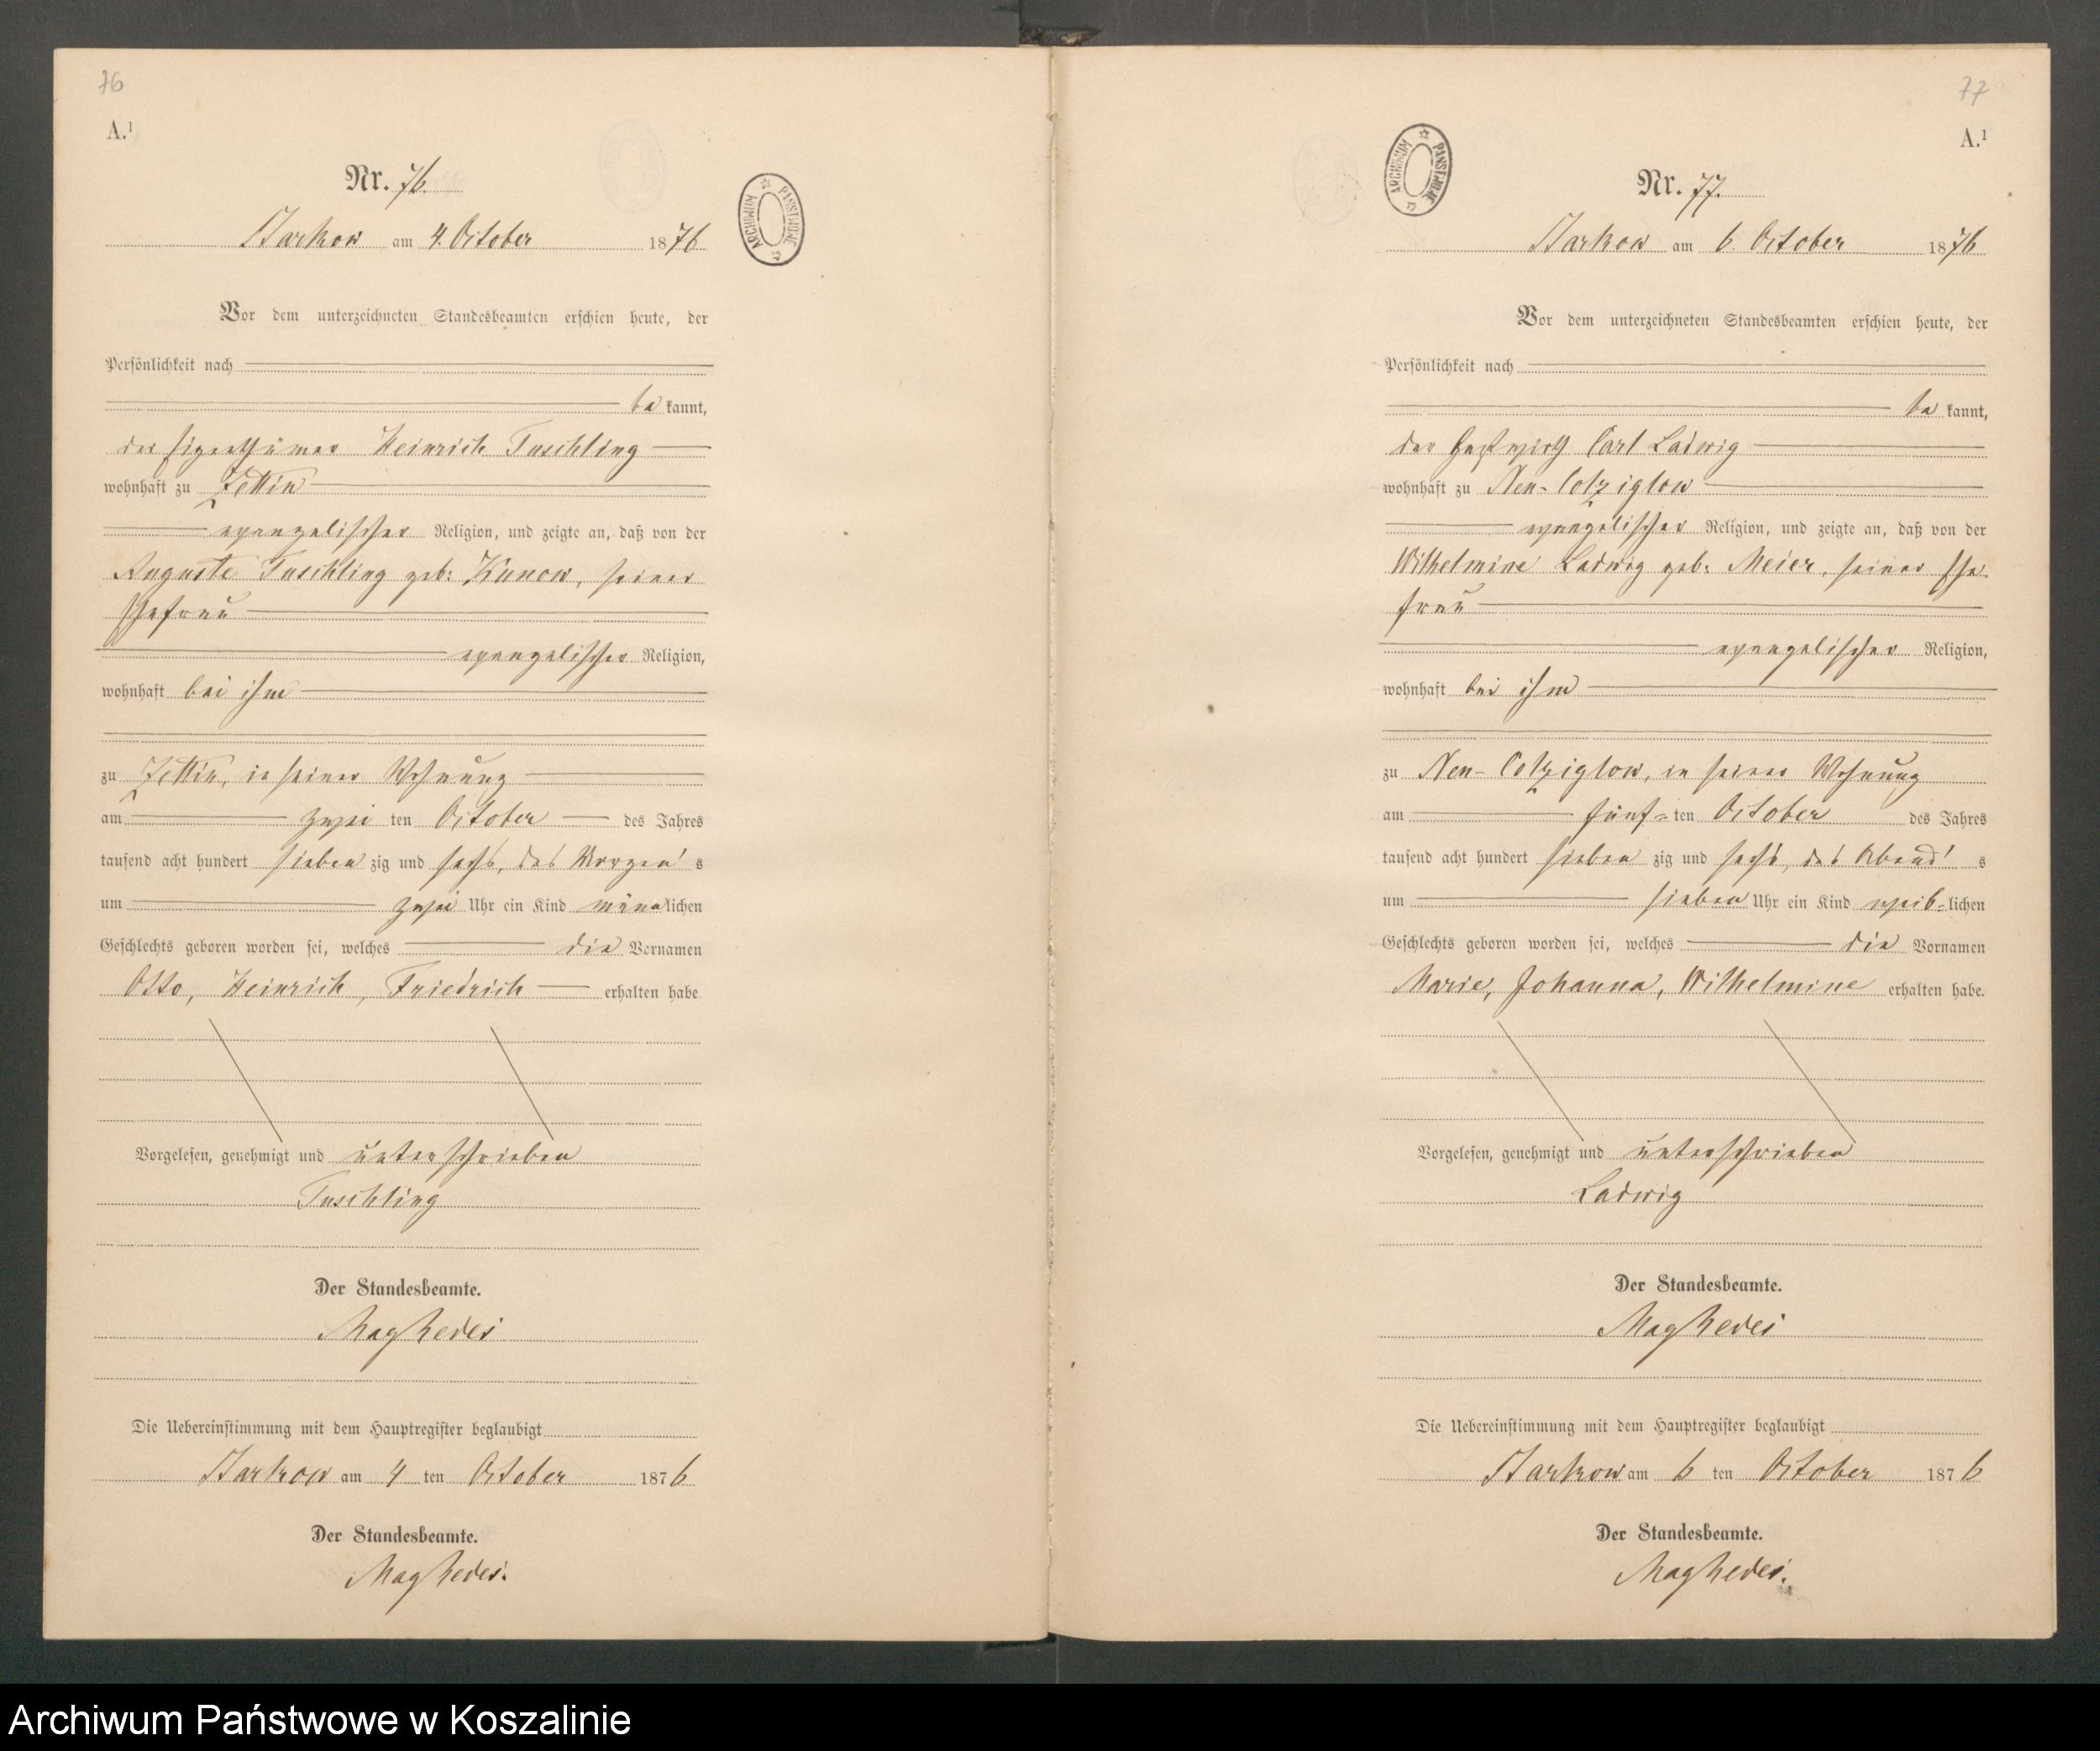 76
A.¹
Nr. 76.
Starkow am 4. October 1876
Vor dem unterzeichneten Standesbeamten erschien heute, der
Persönlichkeit nach
be kannt,
der Eigenthümer Heinrich Tuschling
wohnhaft zu Zettin
evangelischer Religion, und zeigte an, daß von der
Auguste Tuschling geb: Kunow, seiner
Ehefrau
evangelischer Religion,
wohnhaft bei ihm
zu Zettin, in seiner Wohnung
am zwei ten October des Jahres
tausend acht hundert sieben zig und sechs, des Morgen's
um zwei Uhr ein Kind männlichen
Geschlechts geboren worden sei, welches die Vornamen
Otto, Heinrich, Friedrich erhalten habe.
Vorgelesen, genehmigt und unterschrieben
Tuschling
Der Standesbeamte.
Die Uebereinstimmung mit dem Hauptregister beglaubigt
Starkow am 4 ten October 1876
Der Standesbeamte.
ARCHIWUM PAŃSTWOWE
77
A.¹
Nr. 77.
Starkow am 6. October 1876
Vor dem unterzeichneten Standesbeamten erschien heute, der
Persönlichkeit nach
be kannt,
der Gastwirth Carl Ladwig
wohnhaft zu Neu-Colziglow
evangelischer Religion, und zeigte an, daß von der
Wilhelmine Ladwig geb: Meier, seiner Ehe-
frau
evangelischer Religion,
wohnhaft bei ihm
zu Neu-Colziglow, in seiner Wohnung
am fünf-ten October des Jahres
tausend acht hundert sieben zig und sechs, des Abend's
um sieben Uhr ein Kind weib-lichen
Geschlechts geboren worden sei, welches die Vornamen
Marie, Johanna, Wilhelmine erhalten habe.
Vorgelesen, genehmigt und unterschrieben
Ladwig
Der Standesbeamte.
Die Uebereinstimmung mit dem Hauptregister beglaubigt
Starkow am 6 ten October 1876
Der Standesbeamte.
ARCHIWUM PAŃSTWOWE
Archiwum Państwowe w Koszalinie